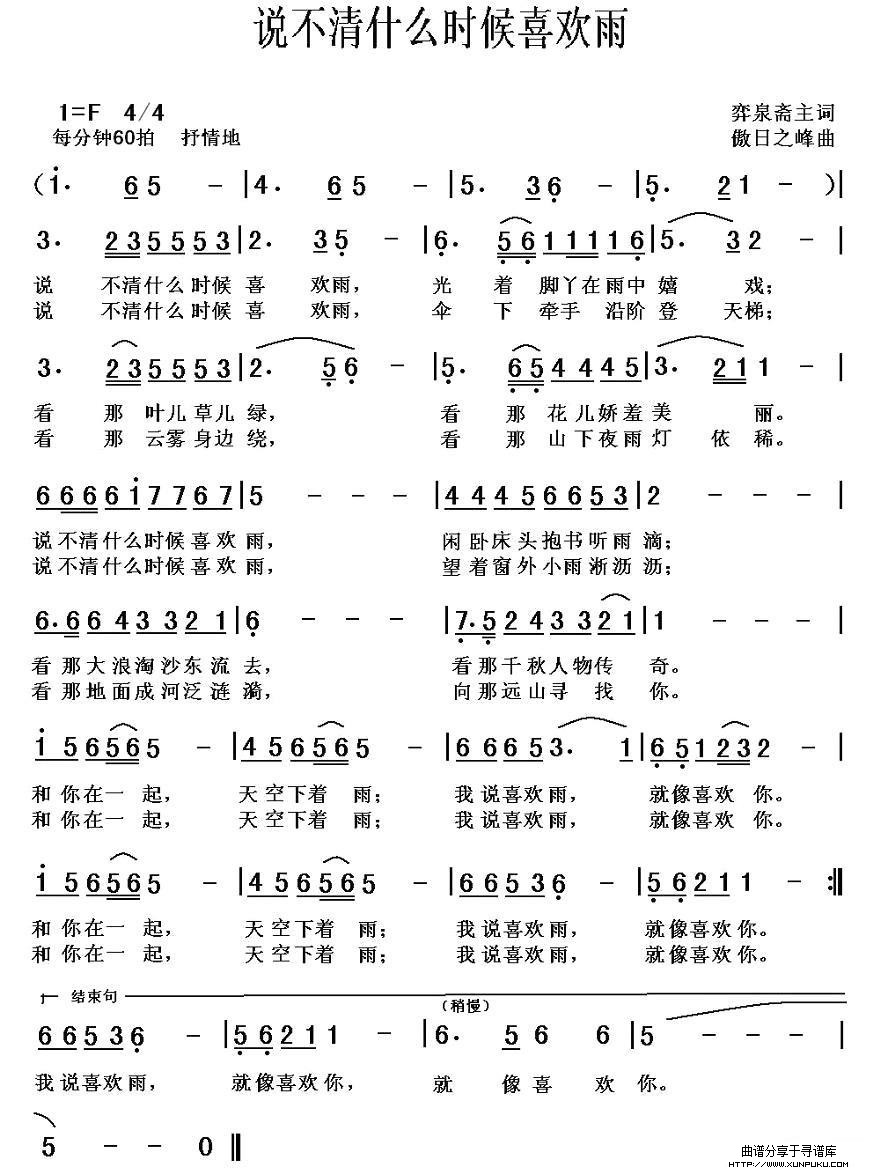 说不清什么时候喜欢雨
1=F 4/4
弈泉斋主词
每分钟60拍 抒情地
傲日之峰曲
(i· 65 - |4· 65 - |5· 36 - |5· 21 - )|
3· 23555553|2· 35 - |6· 561111 16|5· 32 - |
说 不清什么时候喜 欢雨， 光 着 脚丫在雨中嬉 戏；
说 不清什么时候喜 欢雨， 伞 下 牵手 沿阶登 天梯；
3· 2355553|2· 56 - |5· 654445|3· 211 - |
看 那 叶儿草儿绿， 看 那 花儿娇羞美 丽。
看 那 云雾身边绕， 看 那 山下夜雨灯 依稀。
66661i7767|5 - - - |444566553|2 - - - |
说不清什么时候喜欢雨， 闲卧床头抱书听雨滴；
说不清什么时候喜欢雨， 望着窗外小雨淅沥沥；
6·6643321|6 - - - |7·5243321|1 - - - |
看那大浪淘沙东流去， 看那千秋人物传 奇。
看那地面成河泛涟漪， 向那远山寻 找 你。
i56565 - |456565 - |66653· 1|651232 - |
和你在一 起， 天空下着 雨； 我说喜欢雨， 就像喜欢 你。
和你在一 起， 天空下着 雨； 我说喜欢雨， 就像喜欢 你。
i56565 - |456565 - |66536 - |56211 - :||
和你在一 起， 天空下着 雨； 我说喜欢雨， 就像喜欢你。
和你在一 起， 天空下着 雨； 我说喜欢雨， 就像喜欢你。
结束句
(稍慢)
66536 - |56211 - |6· 56 6|5 - - - |
我说喜欢雨， 就像喜欢你， 就 像喜 欢 你。
5 - - 0 ||
曲谱分享于寻谱库
HTTP://WWW.XUNPUKU.COM